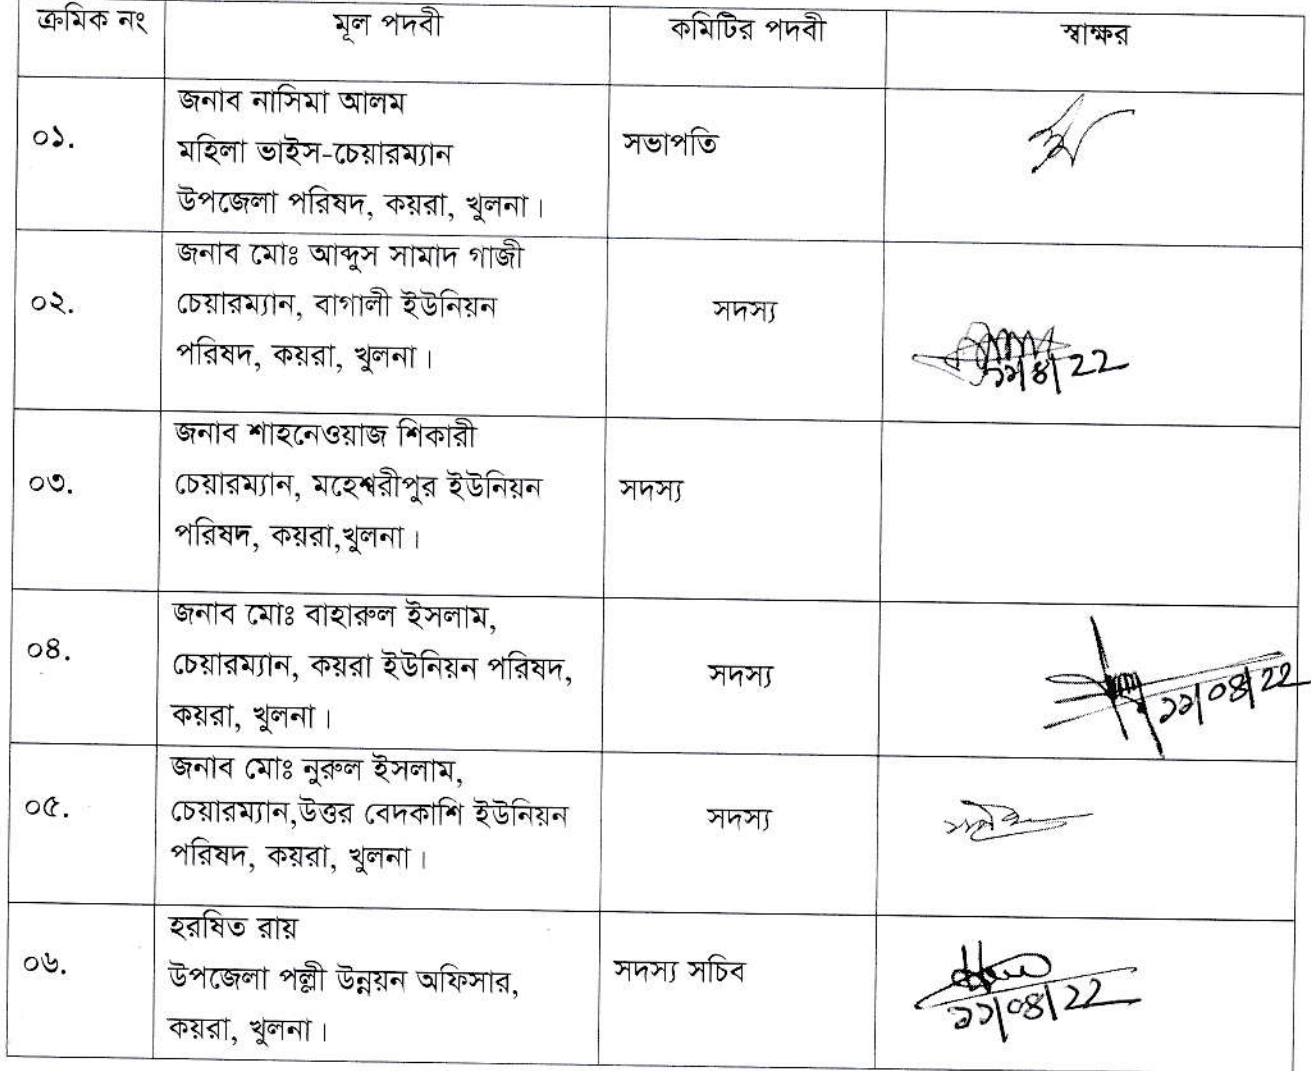 ক্রমিক নং মূল পদবী কমিটির পদবী স্বাক্ষর
০১. জনাব নাসিমা আলম
মহিলা ভাইস-চেয়ারম্যান
উপজেলা পরিষদ, কয়রা, খুলনা।
সভাপতি
০২. জনাব মোঃ আব্দুস সামাদ গাজী
চেয়ারম্যান, বাগালী ইউনিয়ন
পরিষদ, কয়রা, খুলনা।
সদস্য
০৩. জনাব শাহনেওয়াজ শিকারী
চেয়ারম্যান, মহেশ্বরীপুর ইউনিয়ন
পরিষদ, কয়রা,খুলনা।
সদস্য
০৪. জনাব মোঃ বাহারুল ইসলাম,
চেয়ারম্যান, কয়রা ইউনিয়ন পরিষদ,
কয়রা, খুলনা।
সদস্য
০৫. জনাব মোঃ নুরুল ইসলাম,
চেয়ারম্যান,উত্তর বেদকাশি ইউনিয়ন
পরিষদ, কয়রা, খুলনা।
সদস্য
০৬. হরষিত রায়
উপজেলা পল্লী উন্নয়ন অফিসার,
কয়রা, খুলনা।
সদস্য সচিব